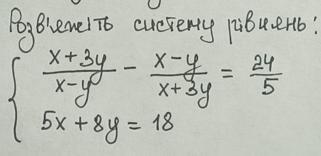 Розв'яжіть систему рівнянь:
{ (x+3y)/(x-y) - (x-y)/(x+3y) = 24/5
5x+8y=18